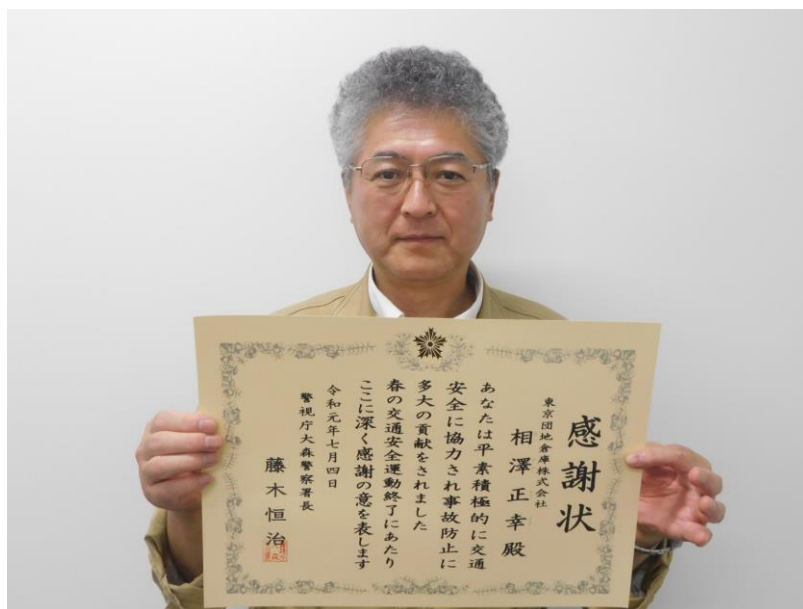 感謝状
東京団地倉庫株式会社
相澤正幸殿
あなたは平素積極的に交通
安全に協力され事故防止に
多大の貢献をされました
春の交通安全運動終了にあたり
ここに深く感謝の意を表します
令和元年七月四日
警視庁大森警察署長
藤木恒治